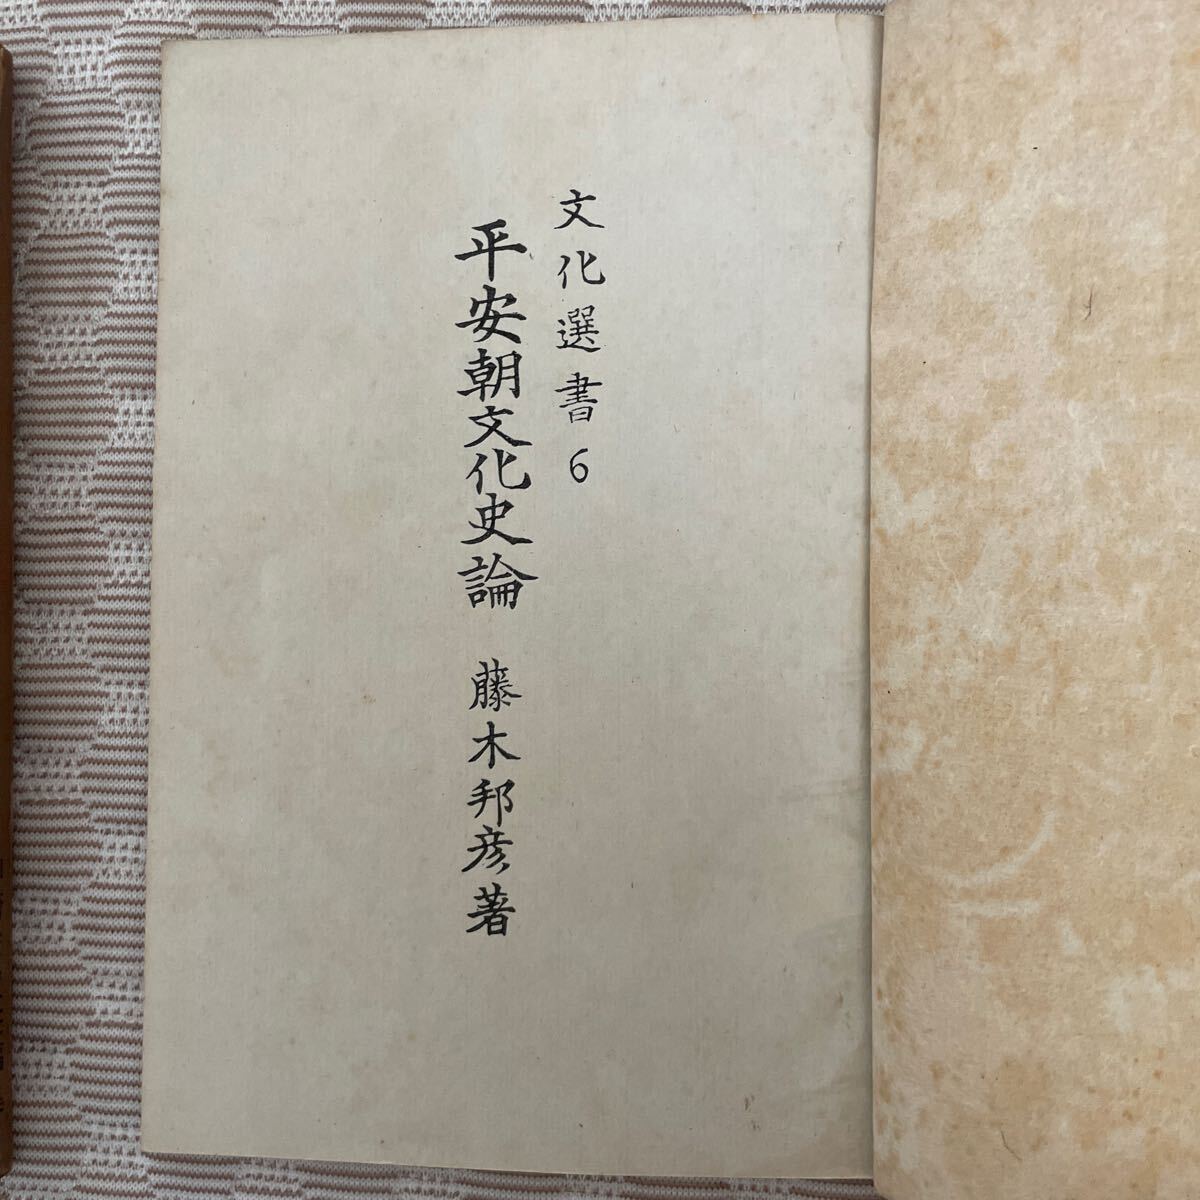 文化選書6
平安朝文化史論 藤木邦彦著